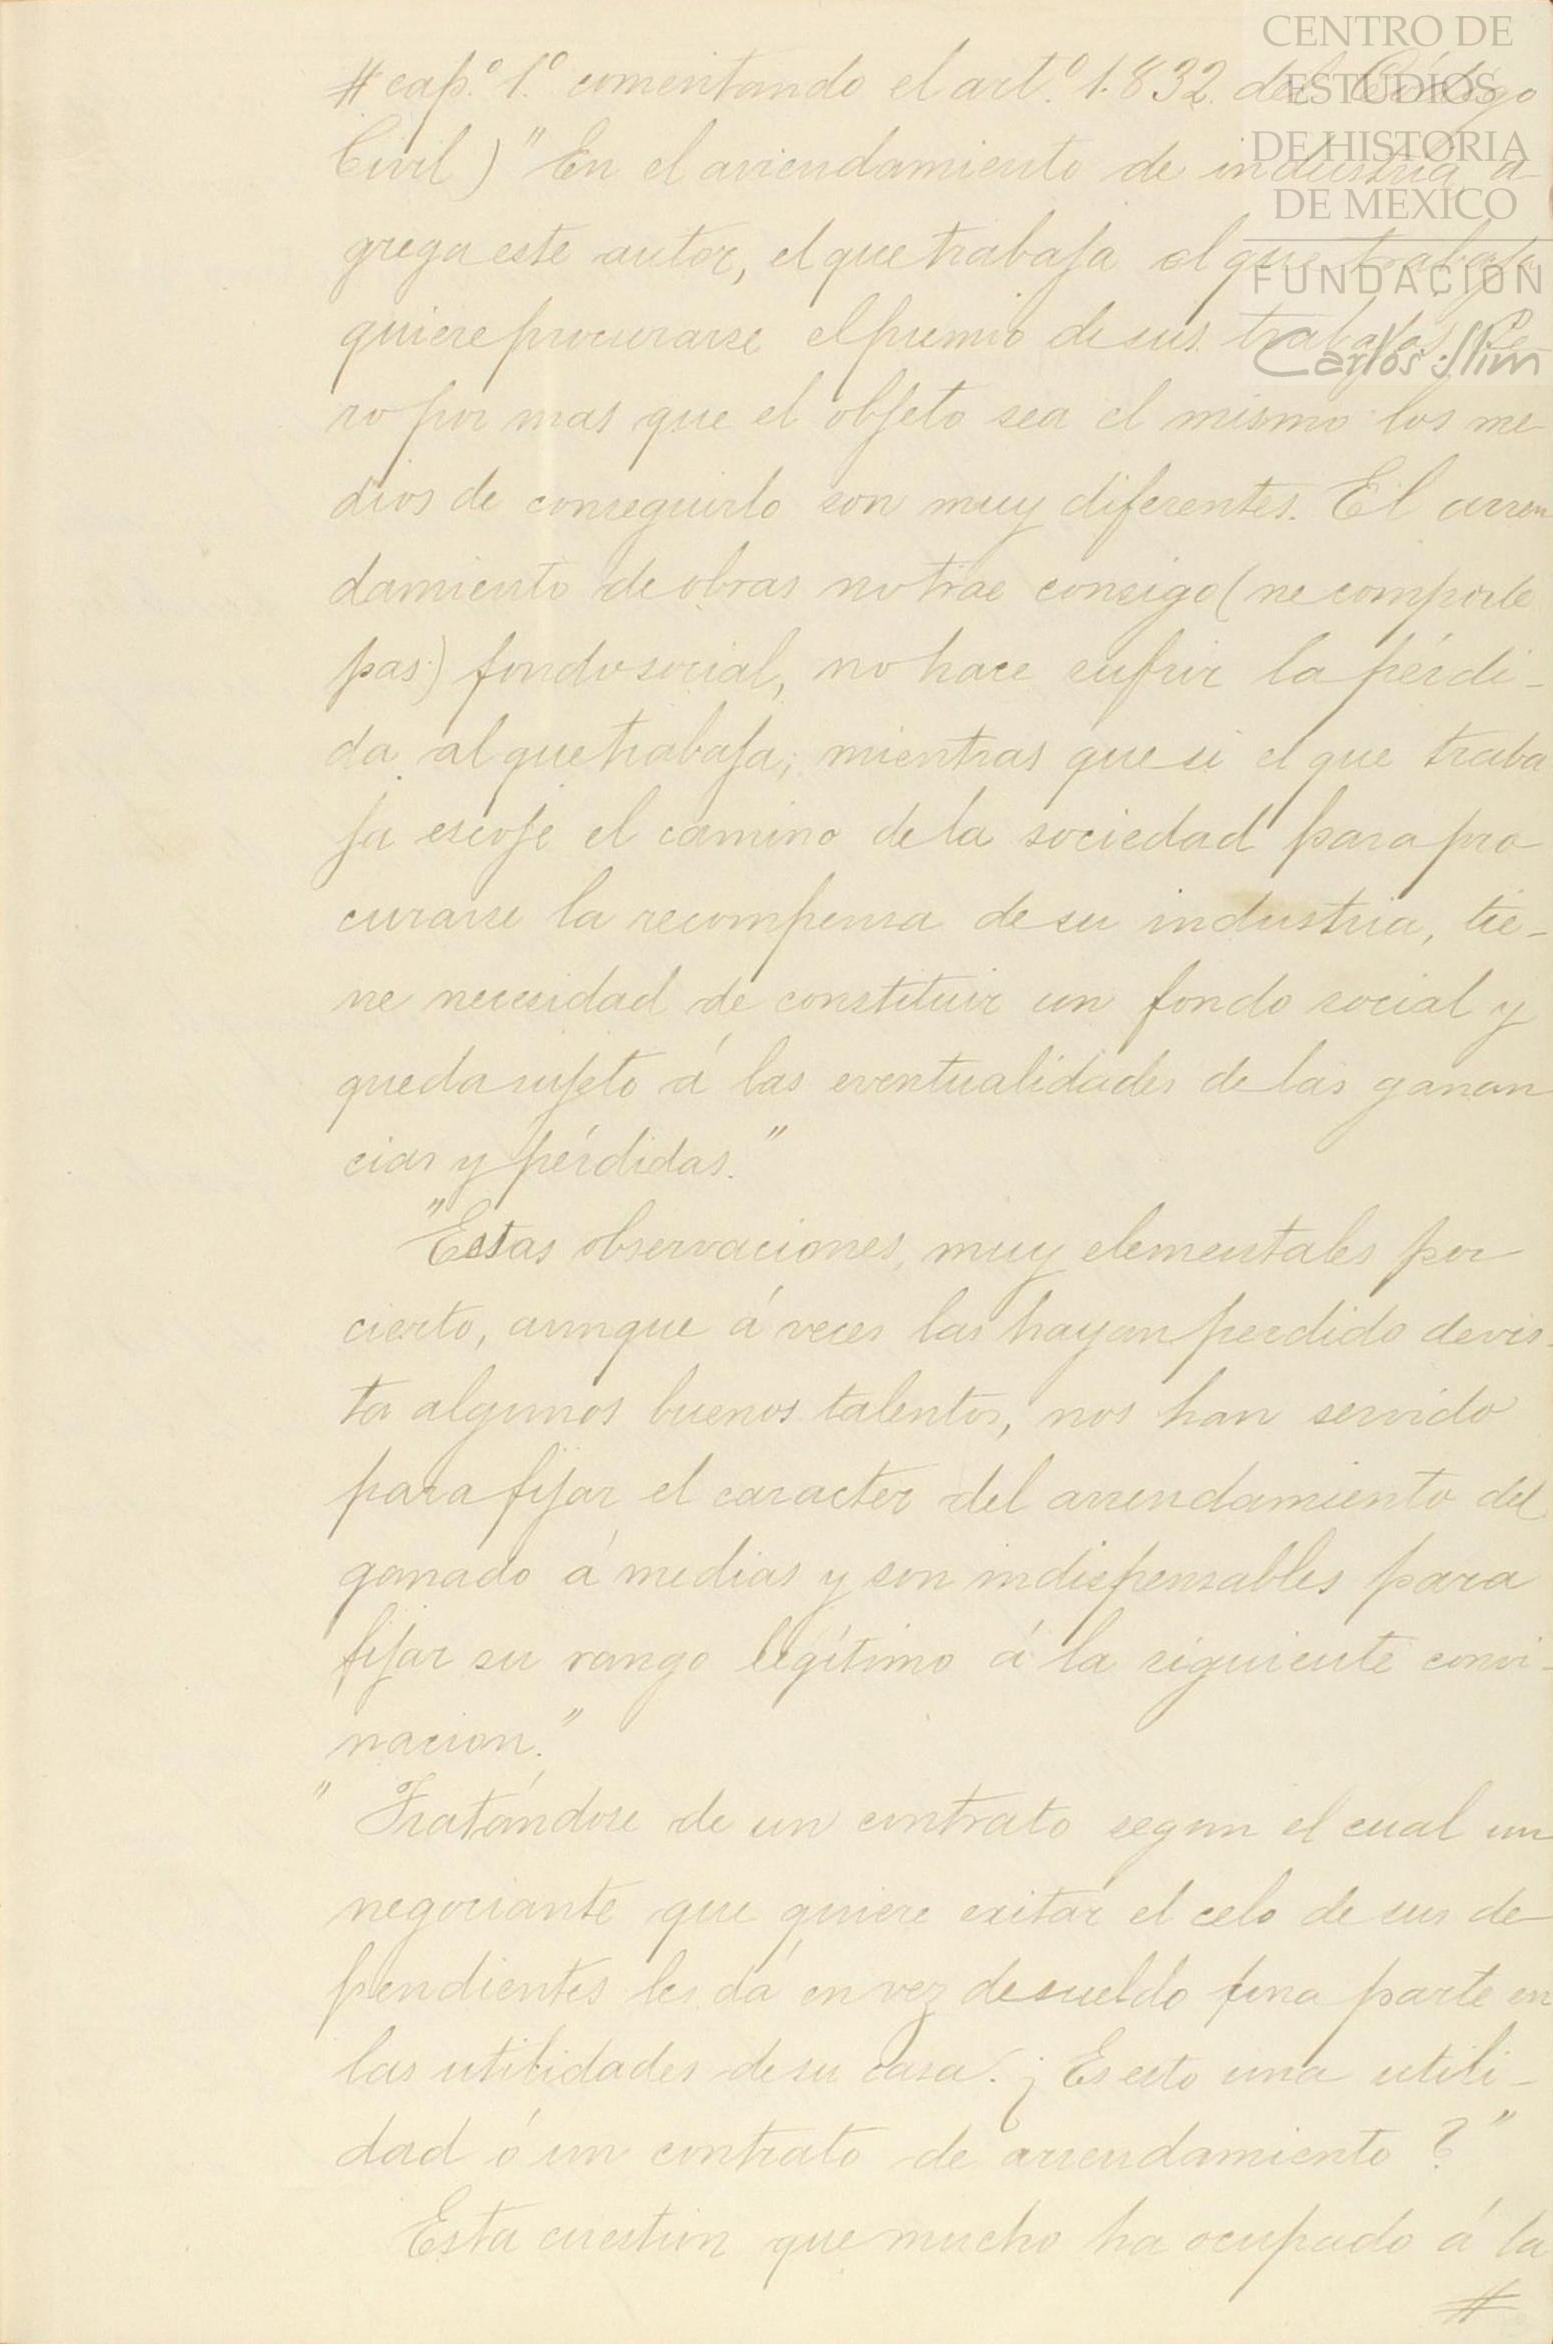 # cap.º 1.º comentando el art.º 1.832. del Código
Civil) "En el arriendamiento de industria, a
grega este autor, el que trabaja el que trabaja
quiere procurarse el premio de sus trabajos. Pe-
ro por mas que el objeto sea el mismo los me-
dios de conseguirlo son muy diferentes. El arren
damiento de obras no trae consigo (ne comporte
pas) fondo social, no hace sufrir la pérdi-
da al que trabaja; mientras que si el que traba
ja escoje el camino de la sociedad para pro-
curarse la recompensa de su industria, tie-
ne necesidad de constituir un fondo social y
queda sujeto á las eventualidades de las ganan
cias y pérdidas."
"Estas observaciones, muy elementales por
cierto, aunque á veces las hayan perdido de vis-
ta algunos buenos talentos, nos han servido
para fijar el caracter del arrendamiento del
ganado á medias y son indispensables para
fijar su rango legítimo á la siguiente convi-
nacion."
" Tratándose de un contrato segun el cual un
negociante que quiere exitar el celo de sus de-
pendientes les dá en vez de sueldo una parte en
las utilidades de su casa. ¿Es esto una utili-
dad ó un contrato de arrendamiento?"
Esta cuestion que mucho ha ocupado á la
#
CENTRO DE
ESTUDIOS
DE HISTORIA
DE MEXICO
FUNDACION
Carlos Slim